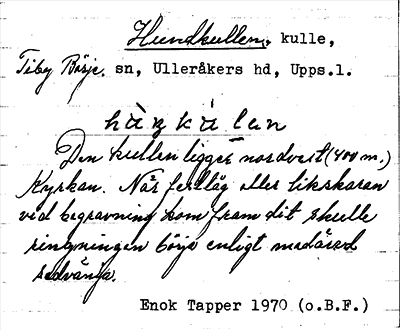 Hundkullen, kulle,
Tiby Börje. sn, Ulleråkers hd, Upps.l.
hàŋkálen
Den kullen ligger nordvest (400 m.)
Kyrkan. När festlåg eller likskaran
vid begravning kom fram dit skulle
ringningen börja enligt
sedvänja.
Enok Tapper 1970 (o.B.F.)